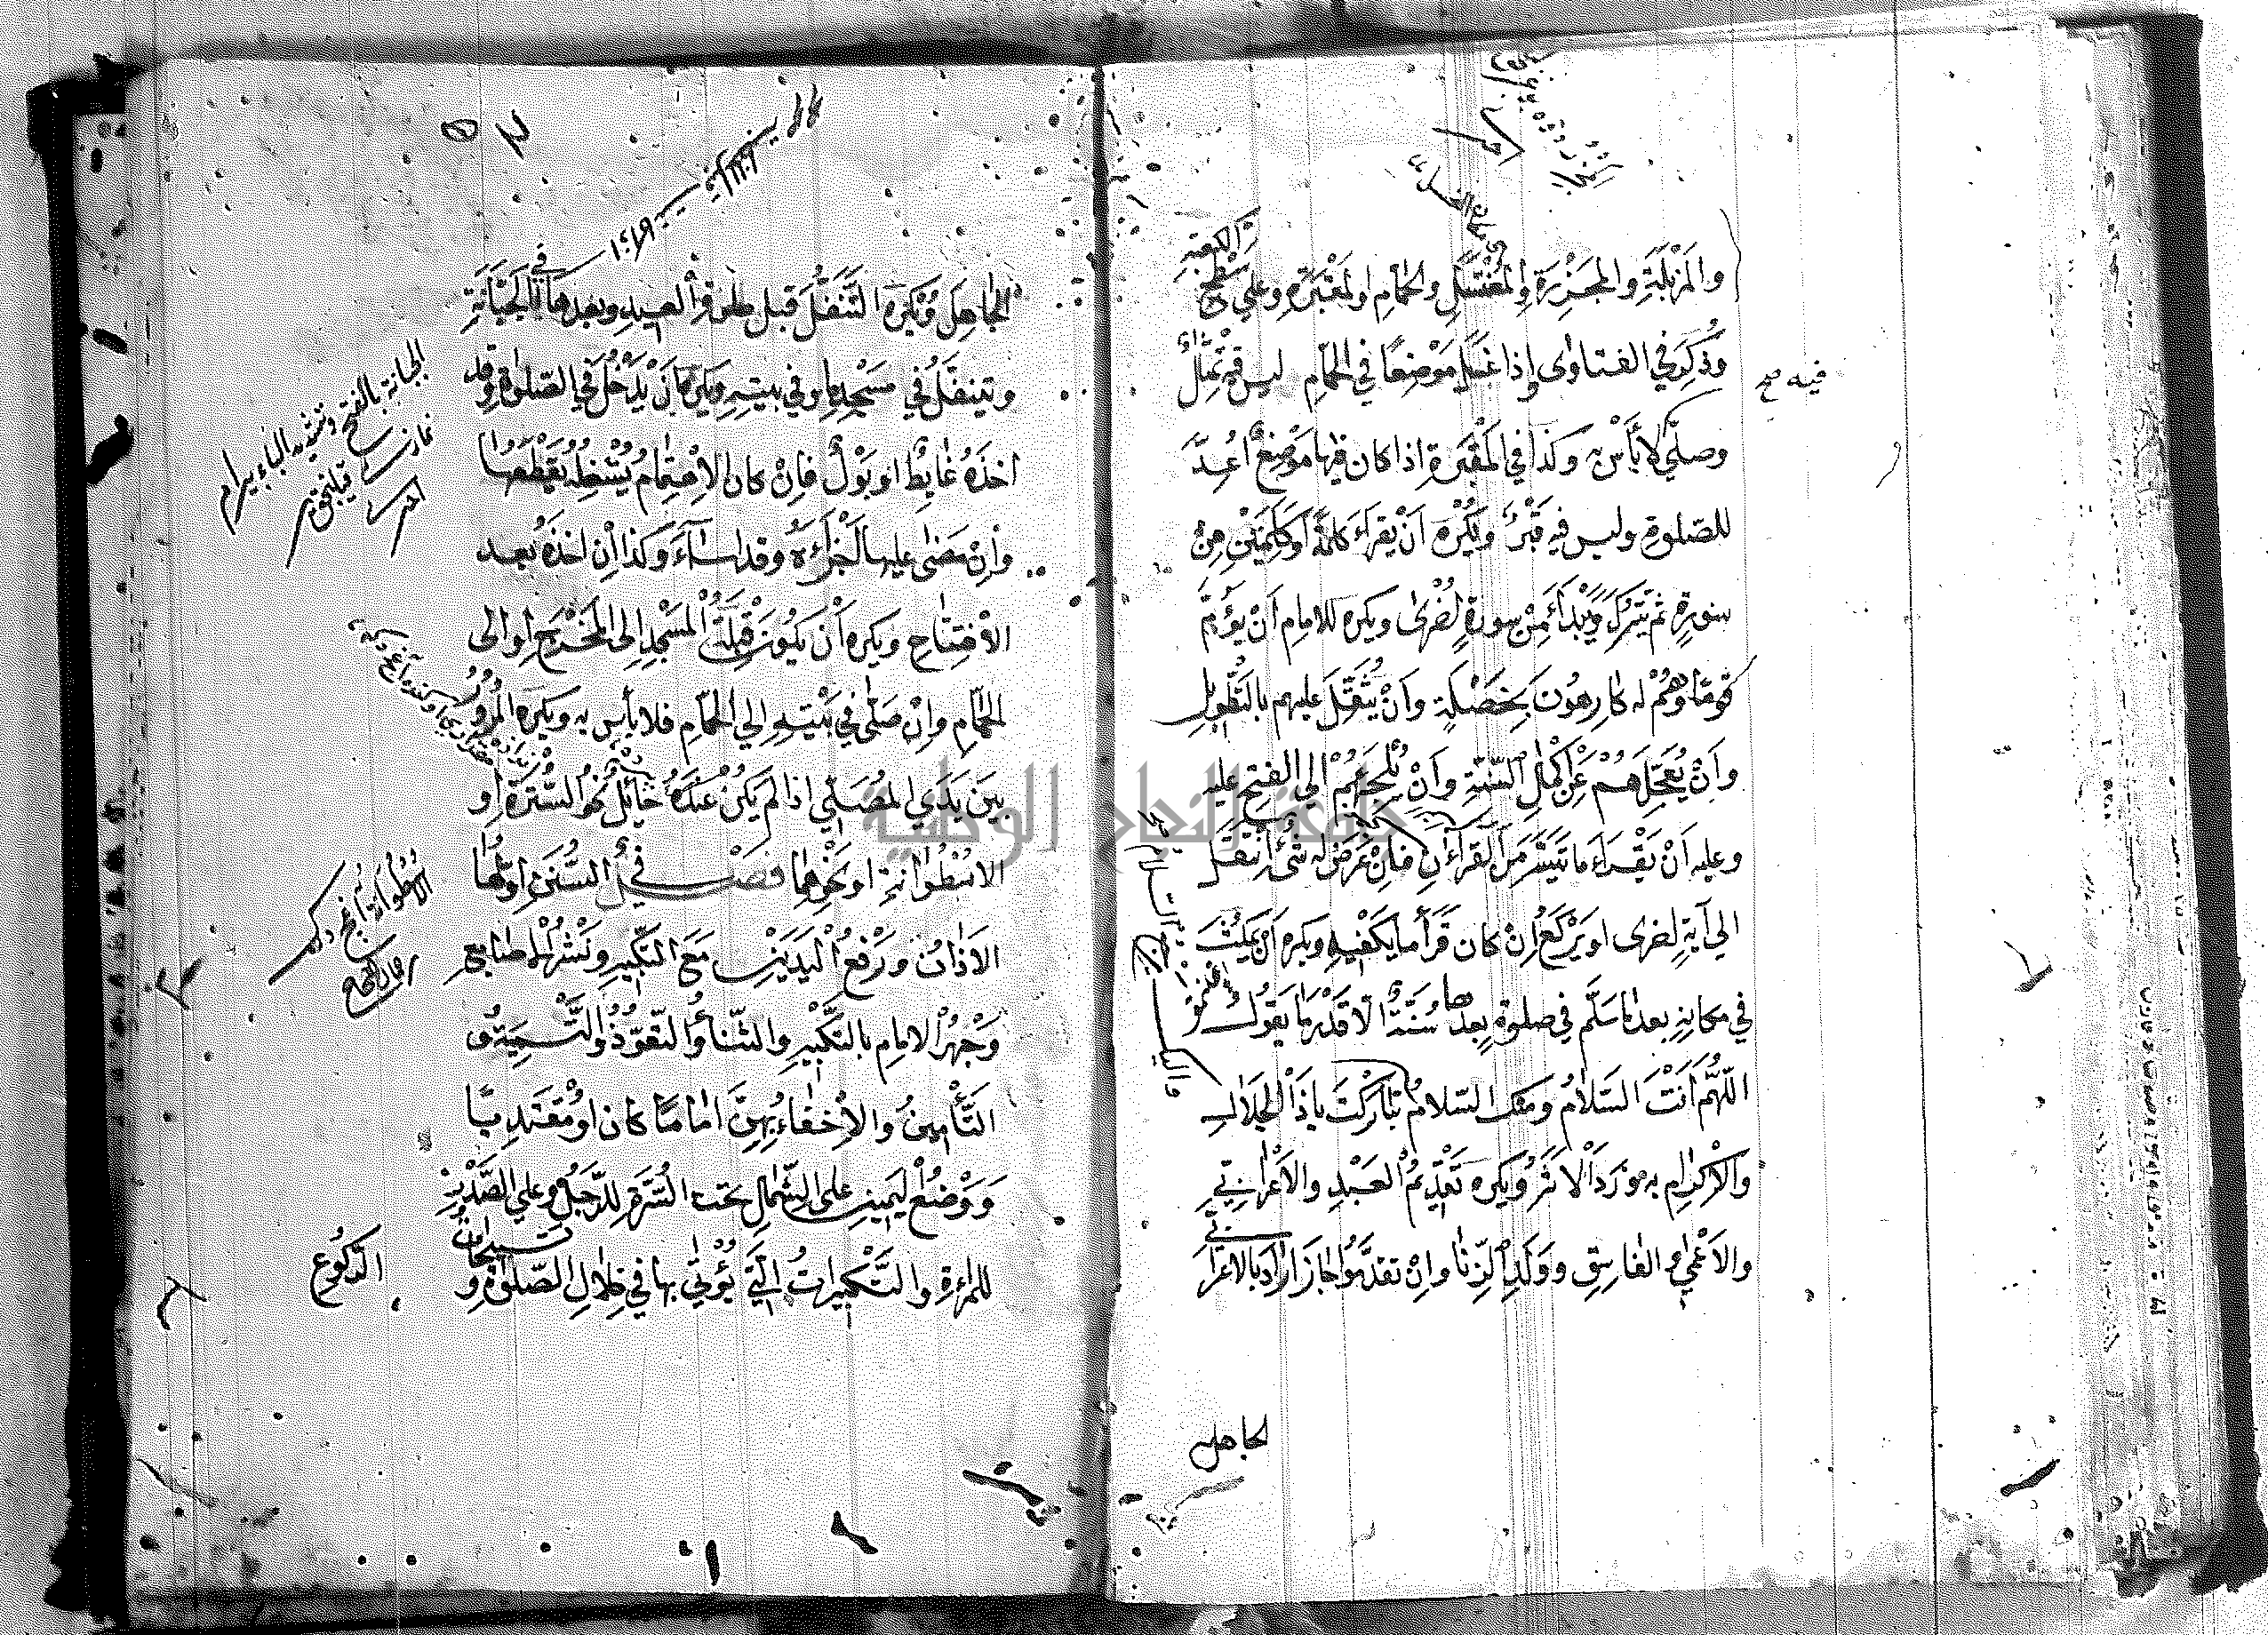 والمزبلة والمجزرة والمغتسل والحمام والمقبرة وعلى سطح
الكعبة
وذكر في الفتاوى وإذا غسل موضعا في الحمام ليس فيه تمثال
فيه صح
وصلى لا بأس به وكذا في المقبرة اذا كان فيها موضع اعد
للصلوة وليس فيه قبر ويكره ان يقراء كلمة او كلمتين من
سورة ثم يترك ويبداء من سورة اخرى ويكره للامام ان يؤم
قوما وهم له كارهون بخصلة وان يثقل عليهم بالتطويل
وان يعجلهم عن اكمال السنة وان يلجئهم الى الفتح عليه
وعليه ان يقراء ما تيسر من القرآن فان عرض له شئ انتقل
الى آية اخرى او يركع ان كان قرأ ما يكفيه ويكره ان يمكث
في مكانه بعد ما سلم في صلوة بعدها سنة الا قدر ما يقول
اللهم انت السلام ومنك السلام تباركت يا ذا الجلال
والاكرام به ورد الاثر ويكره تقديم العبد والاعرابي
والاعمى والفاسق وولد الزنا وان تقدموا جاز اراد بالاعرابي
الجاهل
الجاهل ويكره التنفل قبل صلوة العيد وبعدها في الجبانة
ويتنفل في مسجده او في بيته ويكره ان يدخل في الصلوة وقد
اخذه غايط او بول فان كان الاهتمام يشغله يقطعها
وان مضى عليها اجزاءه وقد اساء وكذا ان اخذه بعد
الافتتاح ويكره ان يكون قبلة المسجد الى المخرج او الى
الحمام وان صلى في بيته الى الحمام فلا بأس به ويكره المرور
بين يدي المصلي اذا لم يكن عنده حائل نحو السترة او
الاسطوانة او نحوهما فصل في السنن اولها
الاذان ورفع اليدين مع التكبير ونشر الاصابع
وجهر الامام بالتكبير والثناء والتعوذ والتسمية و
التأمين والاخفاء بهن اماما كان او مقتديا
ووضع اليمين على الشمال تحت السرة للرجل وعلى الصدر
للمراءة والتكبيرات التي يؤتى بها في خلال الصلوة و
تسبيحات
الركوع
الجبانة بالفتح وتشديد الباء